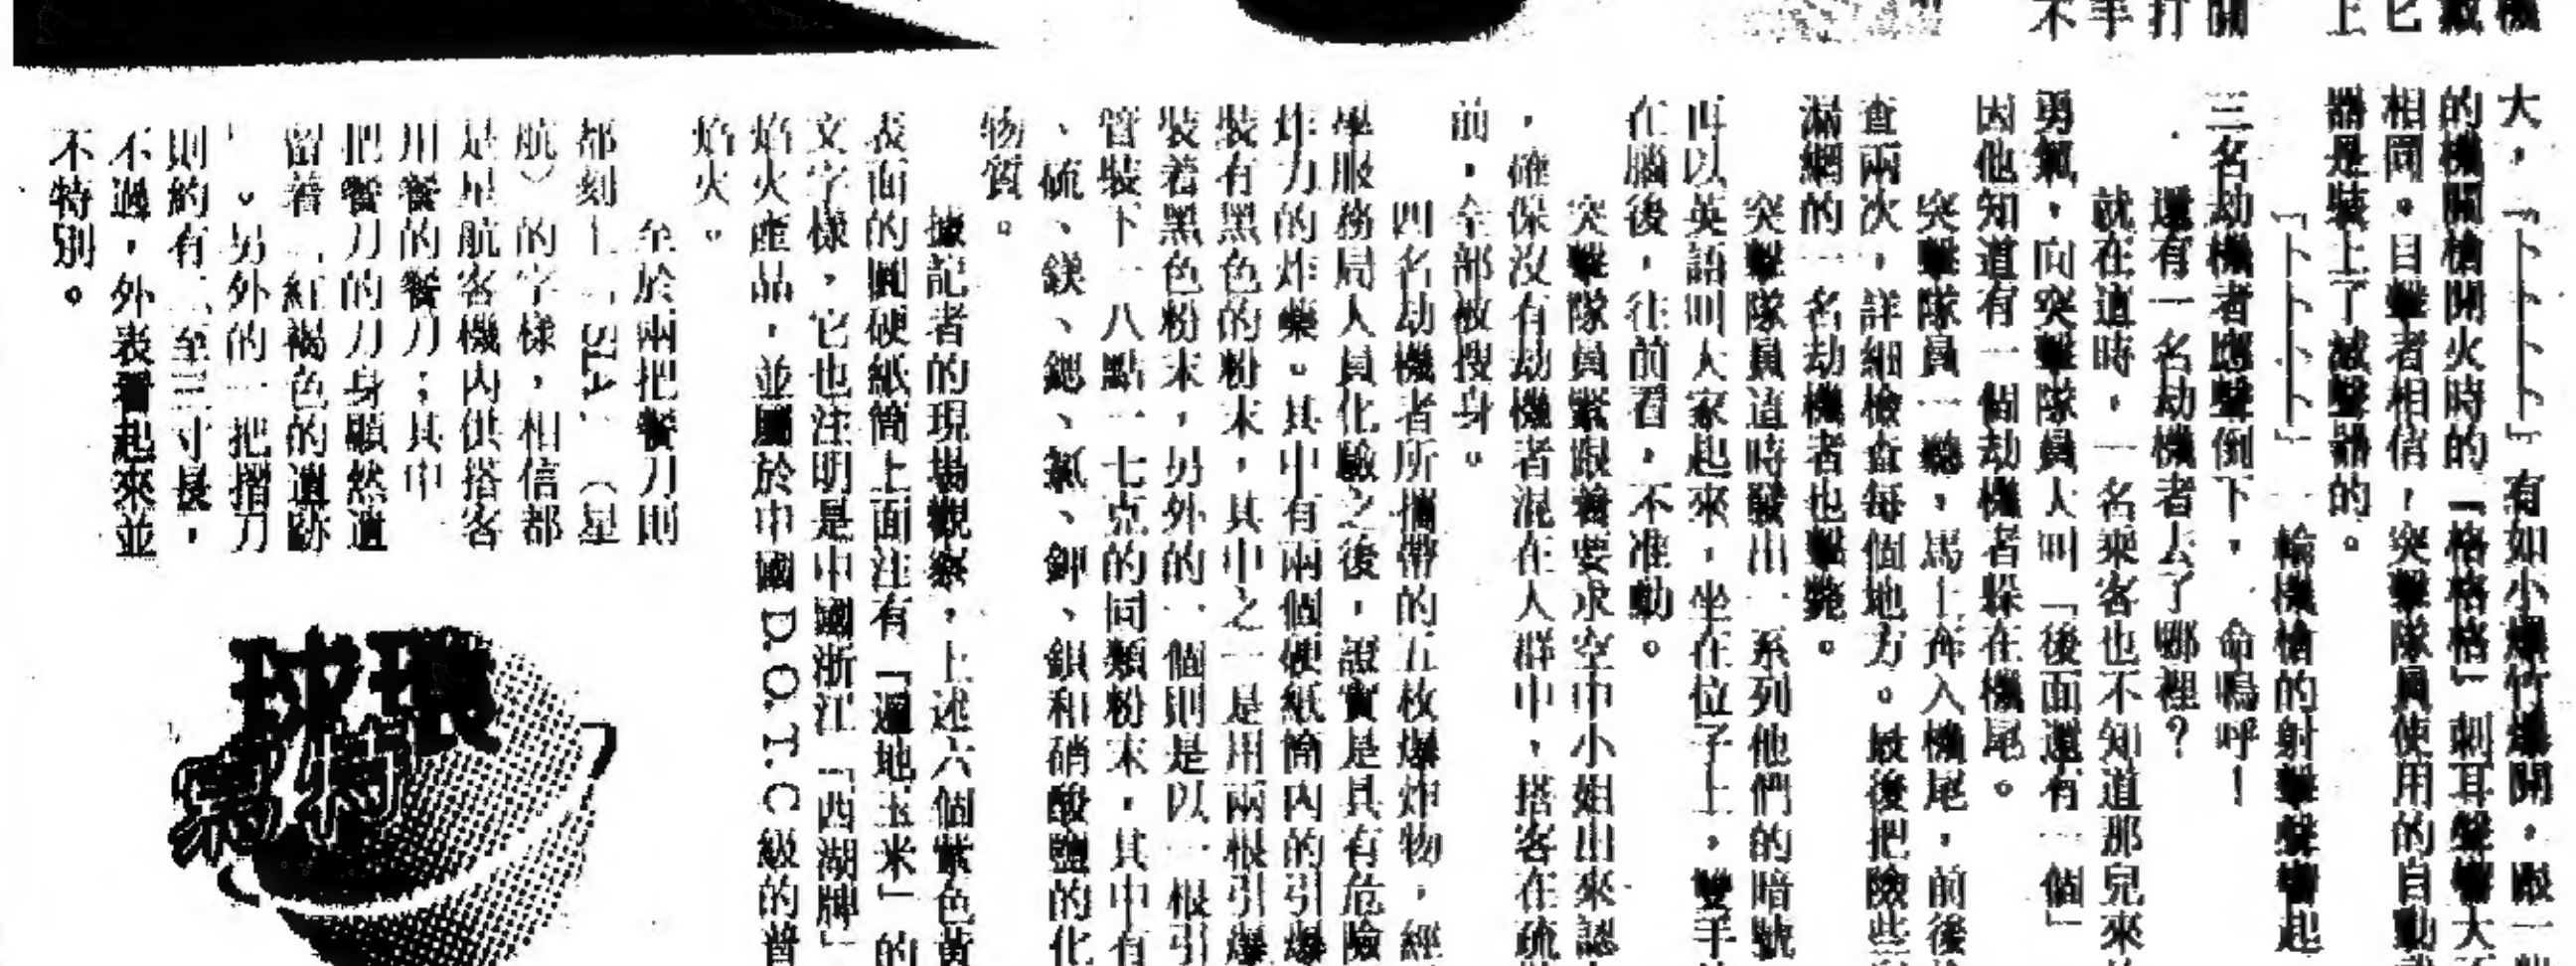 大，「卜卜卜卜」有如小爆竹爆開，跟一
的機關槍開火時的「格格格」刺耳聲響大
相同。目擊者相信，突擊隊員使用的自動
器是裝上了滅聲器的。
「卜卜卜卜」一輪機槍的射擊聲響起
三名劫機者應聲倒下，一命嗚呼！
還有一名劫機者去了哪裡？
就在這時，一名乘客也不知道那兒來
勇氣，向突擊隊員大叫「後面還有一個」
因他知道有一個劫機者躲在機尾。
突擊隊員一聽，馬上奔入機尾，前後
查兩次，詳細檢查每個地方。最後把險些
滿網的一名劫機者也擊斃。
突擊隊員這時發出一系列他們的暗號
再以英語叫大家起來，坐在位子上，雙手
在腦後，往前看，不准動。
突擊隊員緊跟着要求空中小姐出來認
，確保沒有劫機者混在人群中，搭客在疏
前，全部被搜身。
四名劫機者所攜帶的五枚爆炸物，經
學服務局人員化驗之後，證實是具有危險
炸力的炸藥。其中有兩個硬紙筒內的引爆
裝有黑色的粉末，其中之一是用兩根引爆
裝着黑色粉末，另外的一個則是以一根引
管裝下一八點一七克的同類粉末，其中有
、硫、鎂、鍶、氯、鉀、鋇和硝酸鹽的化
物質。
據記者的現場觀察，上述六個紫色黃
表面的圓硬紙筒上面注有「遍地玉米」的
文字樣，它也注明是中國浙江「西湖牌」
焰火產品，並屬於中國D.O.T.C級的普
焰火。
至於兩把餐刀則
都刻上「SIA」（星
航）的字樣，相信都
是星航客機內供搭客
用餐的餐刀；其中
把餐刀的刀身顯然遺
留着「紅褐色的遺跡
」。另外的一把摺刀
則約有二至三寸長，
不過，外表看起來並
不特別。
環球
特寫